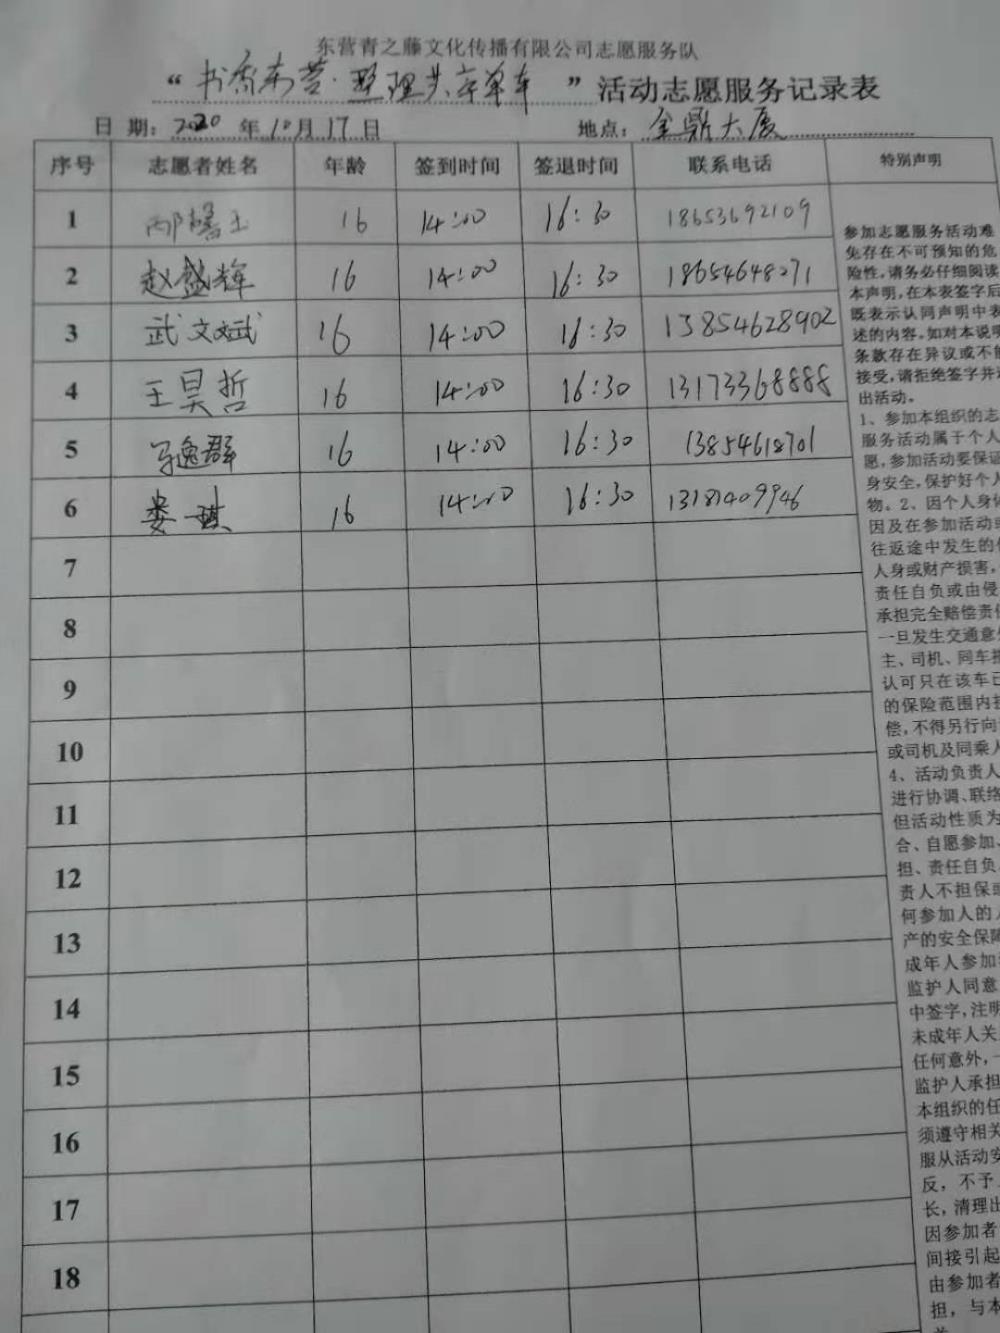 东营青之藤文化传播有限公司志愿服务队
“书香东营·整理共享单车”活动志愿服务记录表
日 期：2020 年 10 月 17 日 地点：金鼎大厦
序号 志愿者姓名 年龄 签到时间 签退时间 联系电话 特别声明
1 邴馨玉 16 14:00 16:30 18653692109
2 赵盛辉 16 14:00 16:30 18654648071
3 武文斌 16 14:00 16:30 13854628902
4 王昊哲 16 14:00 16:30 13173368888
5 马逸群 16 14:00 16:30 13854618701
6 娄琪 16 14:00 16:30 13181409946
7
8
9
10
11
12
13
14
15
16
17
18
参加志愿服务活动难
免存在不可预知的危
险性,请务必仔细阅读
本声明,在本表签字后
既表示认同声明中表
述的内容。如对本说明
条款存在异议或不能
接受,请拒绝签字并退
出活动。
1、参加本组织的志
服务活动属于个人
愿,参加活动要保证
身安全,保护好个人
物。2、因个人身体
因及在参加活动或
往返途中发生的任
人身或财产损害,
责任自负或由侵
承担完全赔偿责任
一旦发生交通意外
主、司机、同车
认可只在该车已
的保险范围内
偿,不得另行向
或司机及同乘人
4、活动负责人
进行协调、联络
但活动性质为
合、自愿参加、
担、责任自负
责人不担保
何参加人的人
产的安全保障
成年人参加
监护人同意
中签字,注明
未成年人关
任何意外,
监护人承担
本组织的任
须遵守相关
服从活动安
反,不予
长,清理出
因参加者
间接引起
由参加者
担,与本